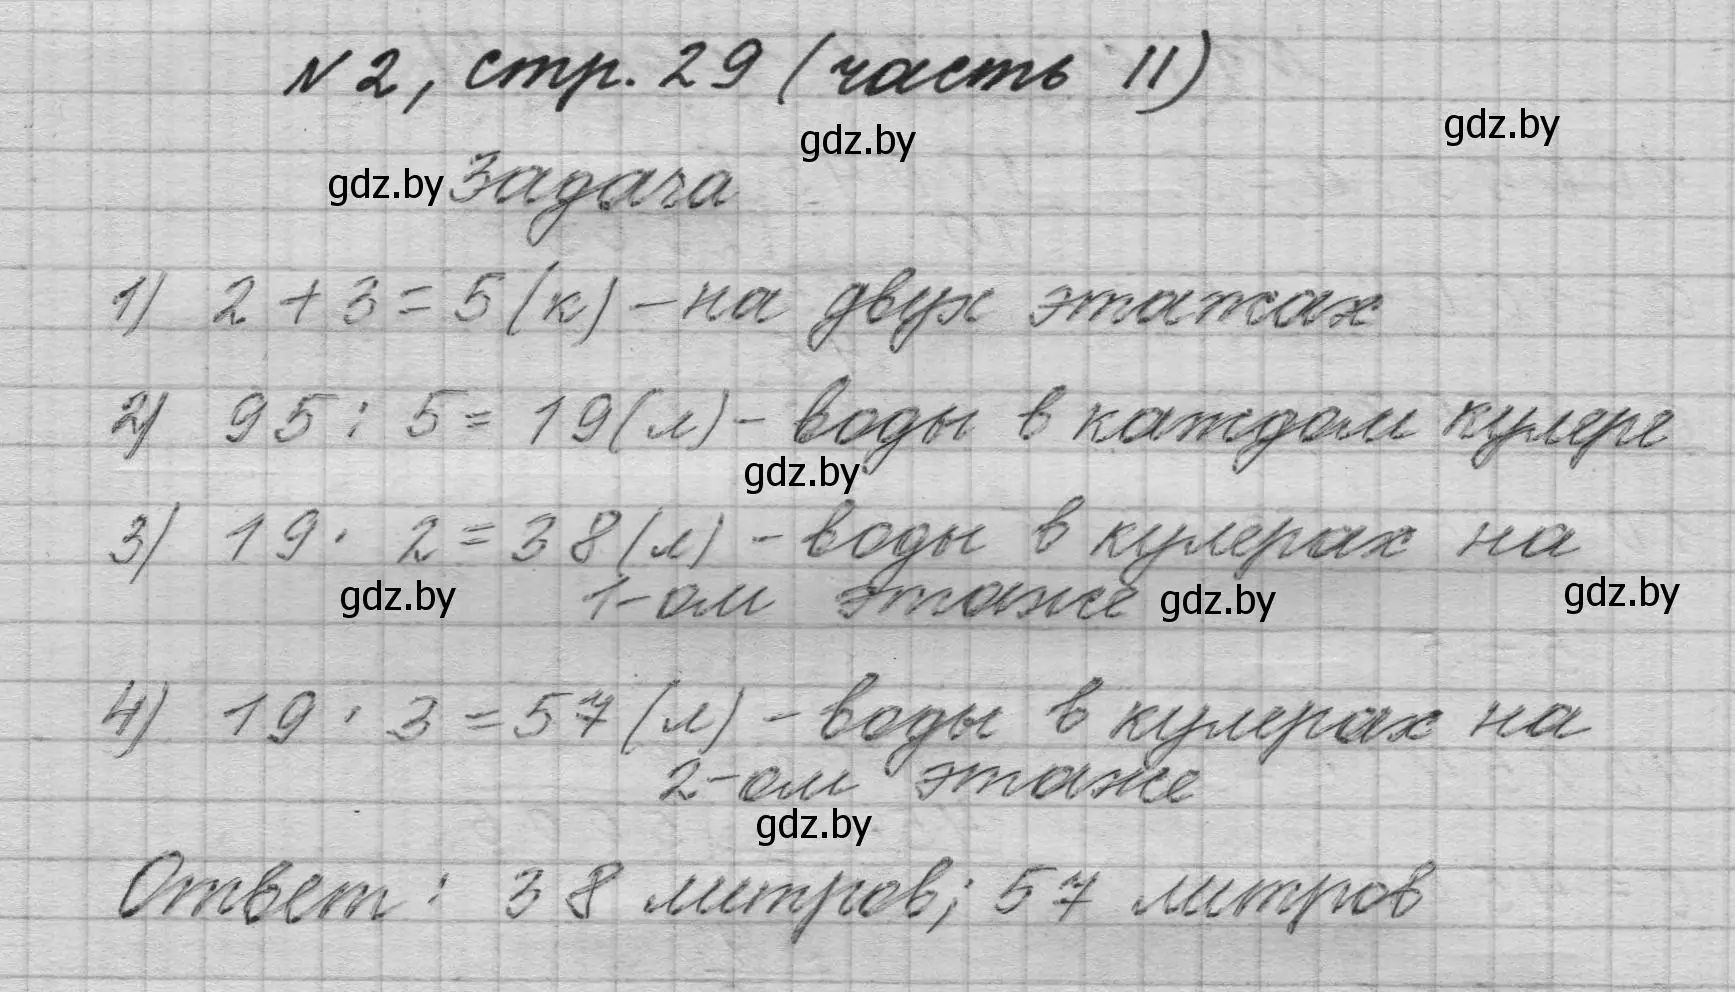 N2, стр. 29 (часть II)
gdz.by
gdz.by
gdz.by Задача
1) 2 + 3 = 5 (к) - на двух этажах
2) 95 : 5 = 19 (л) - воды в каждом кулере
gdz.by
3) 19 · 2 = 38 (л) - воды в кулерах на
gdz.by 1-ом этаже gdz.by gdz.by
4) 19 · 3 = 57 (л) - воды в кулерах на
2-ом этаже
gdz.by
Ответ : 38 литров; 57 литров